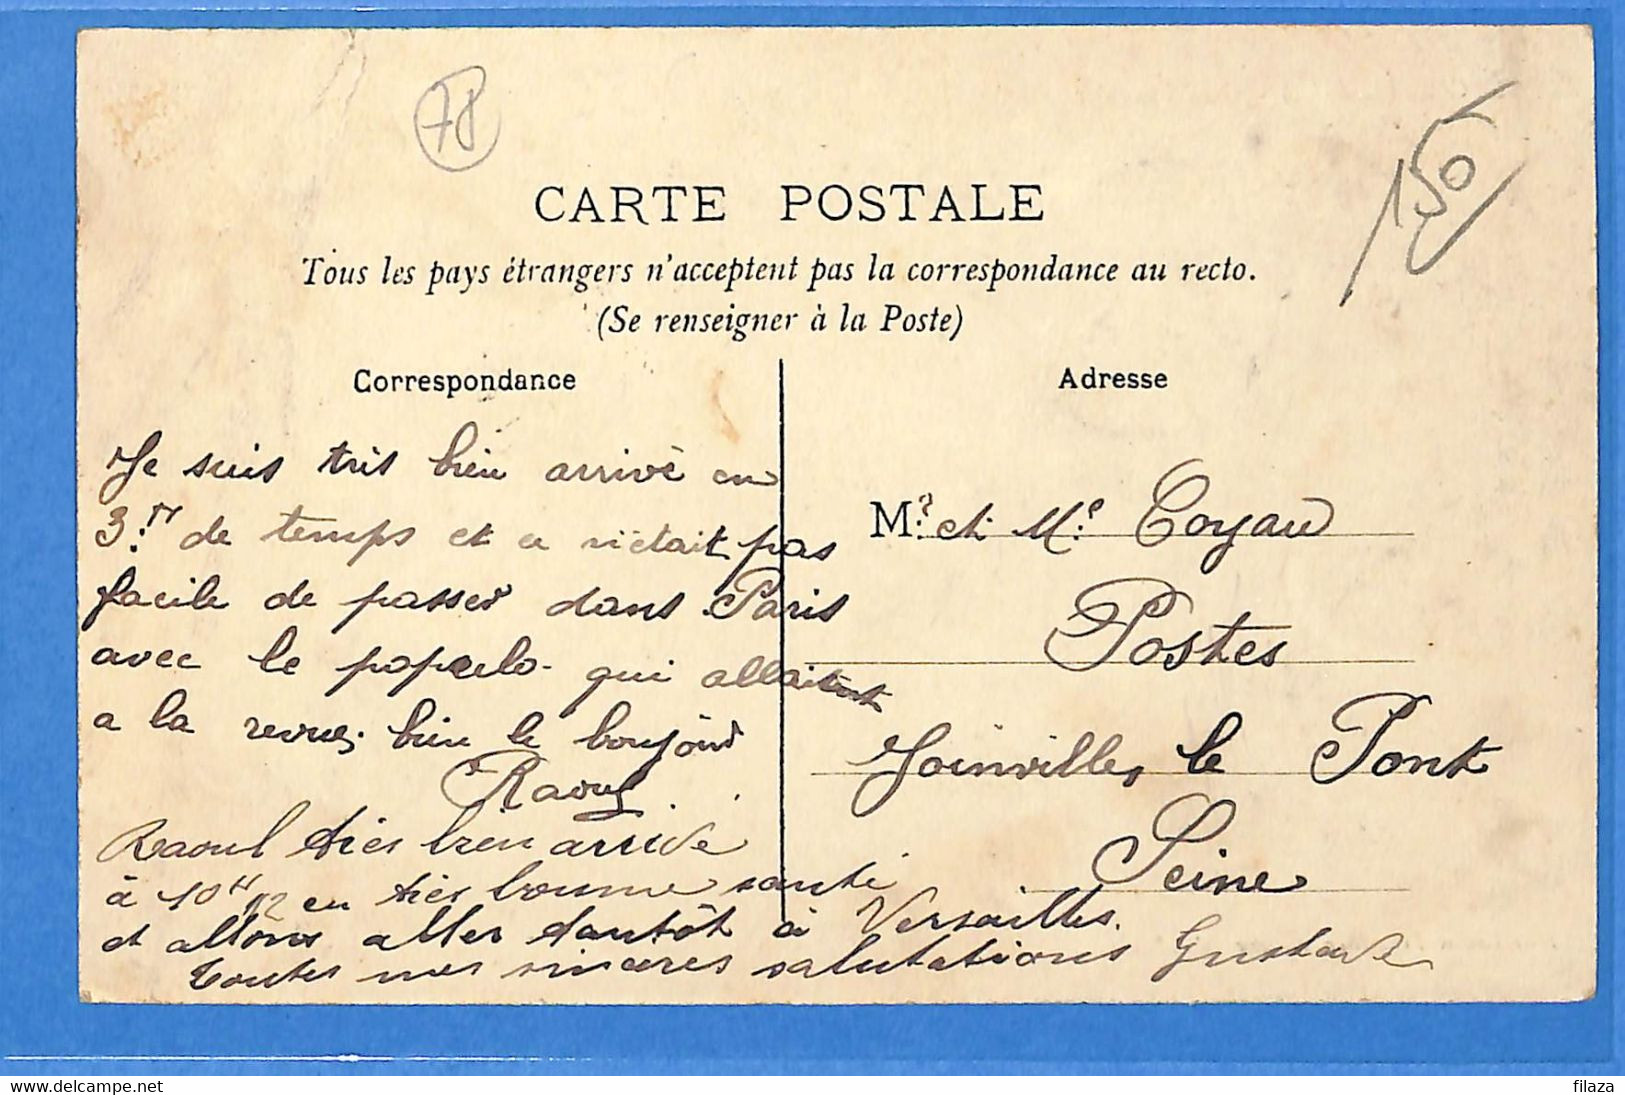 78
150
CARTE POSTALE
Tous les pays étrangers n'acceptent pas la correspondance au recto.
(Se renseigner à la Poste)
Correspondance
Je suis très bien arrivé en
3 h de temps et ce n'était pas
facile de passer dans Paris
avec le populo qui allaient
a la revue. bien le bonjour
Raoul
Raoul très bien arrivé
à 10 H 1/2 en très bonne santé
et allons aller tantôt à Versailles.
toutes mes sincères salutations Gustave
Adresse
Mr. et Me. Coyau
Postes
Joinville, le Pont
Seine
www.delcampe.net
filaza